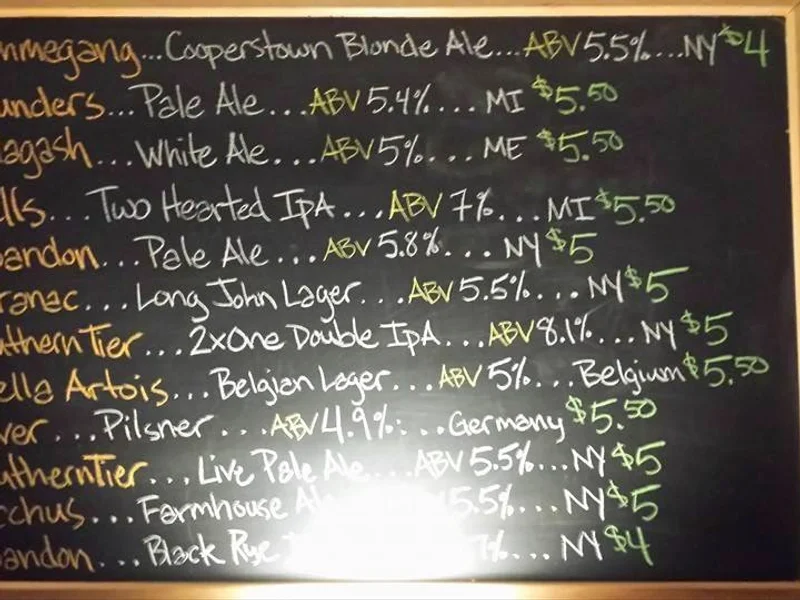 mmegang...Cooperstown Blonde Ale...ABV 5.5%....NY $4
unders...Pale Ale...ABV 5.4%.... MI $5.50
agash...White Ale...ABV 5%... ME $5.50
lls...Two Hearted IPA...ABV 7%...MI $5.50
andon...Pale Ale...ABV 5.8%... NY $5
ranac...Long John Lager...ABV 5.5%... NY $5
thern Tier...2xOne Double IPA...ABV 8.1%... NY $5
ella Artois...Belgian Lager...ABV 5%...Belgium $5.50
ver...Pilsner...ABV 4.9%:...Germany $5.50
uthern Tier...Live Pale Ale...ABV 5.5%...NY $5
cchus...Farmhouse Ale 5.5%...NY $5
andon...Black Rye 7%... NY $4